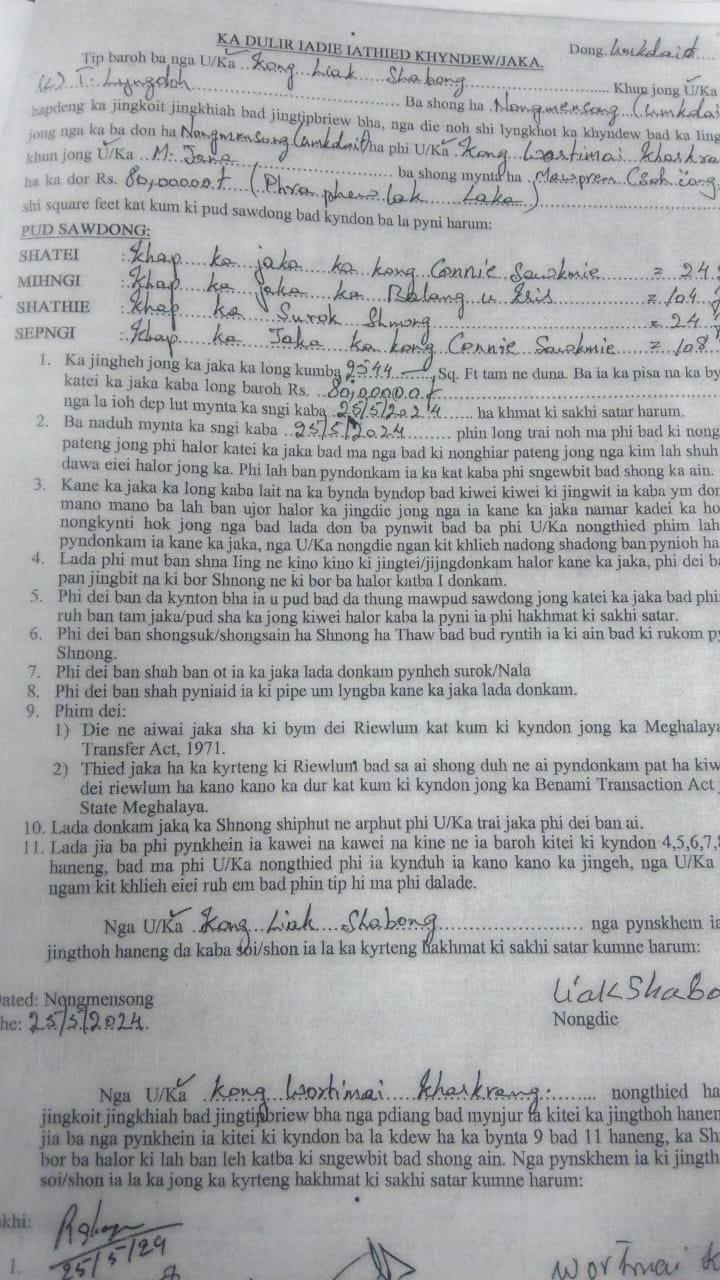 KA DULIR IADIE IATHIED KHYNDEW/JAKA.
Dong. Umkdait
Tip baroh ba nga U/Ka Kong Liak Shabong
(L) T. Lyngdoh Khun jong U/Ka
Ba shong ha Nongmensong (Umkdai
hapdeng ka jingkoit jingkhiah bad jingtipbriew bha, nga die noh shi lyngkhot ka khyndew bad ka ling
jong nga ka ba don ha Nongmensong (Umkdait) ha phi U/Ka Kong Wostimai Kharkra
khun jong U/Ka M. Jana ba shong mynta ha Mawprem
ha ka dor Rs. 80,0000.0f (Phra phew lak Laka)
shi square feet kat kum ki pud sawdong bad kyndon ba la pyni harum:
PUD SAWDONG:
SHATEI : Khap ka jaka ka kong Connie Sawkmie = 24
MIHNGI : Khap ka jaka ka Balang u Kris = 104
SHATHIE : Khap ka Surok Shnong = 24
SEPNGI : Khap ka Jaka ka kong Connie Sawkmie = 108
1. Ka jingheh jong ka jaka ka long kumba 2544 Sq. Ft tam ne duna. Ba ia ka pisa na ka by
katei ka jaka kaba long baroh Rs. 80,0000.0f
nga la ioh dep lut mynta ka sngi kaba 25/5/2024 ha khmat ki sakhi satar harum.
2. Ba naduh mynta ka sngi kaba 25/5/2024 phin long trai noh ma phi bad ki nong
pateng jong phi halor katei ka jaka bad ma nga bad ki nonghiar pateng jong nga kim lah shuh
dawa eiei halor jong ka. Phi lah ban pyndonkam ia ka kat kaba phi sngewbit bad shong ka ain.
3. Kane ka jaka ka long kaba lait na ka bynda byndop bad kiwei kiwei ki jingwit ia kaba ym don
mano mano ba lah ban ujor halor ka jingdie jong nga ia kane ka jaka namar kadei ka ho
nongkynti hok jong nga bad lada don ba pynwit bad ba phi U/Ka nongthied phim lah
pyndonkam ia kane ka jaka, nga U/Ka nongdie ngan kit khlieh nadong shadong ban pynioh ha
4. Lada phi mut ban shna Iing ne kino kino ki jingtei/jijngdonkam halor kane ka jaka, phi dei b
pan jingbit na ki bor Shnong ne ki bor ba halor katba I donkam.
5. Phi dei ban da kynton bha ia u pud bad da thung mawpud sawdong jong katei ka jaka bad phi
ruh ban tam jaka/pud sha ka jong kiwei halor kaba la pyni ia phi hakhmat ki sakhi satar.
6. Phi dei ban shongsuk/shongsain ha Shnong ha Thaw bad bud ryntih ia ki ain bad ki rukom p
Shnong.
7. Phi dei ban shah ban ot ia ka jaka lada donkam pynheh surok/Nala
8. Phi dei ban shah pyniaid ia ki pipe um lyngba kane ka jaka lada donkam.
9. Phim dei:
1) Die ne aiwai jaka sha ki bym dei Riewlum kat kum ki kyndon jong ka Meghalaya
Transfer Act, 1971.
2) Thied jaka ha ka kyrteng ki Riewlum bad sa ai shong duh ne ai pyndonkam pat ha kiw
dei riewlum ha kano kano ka dur kat kum ki kyndon jong ka Benami Transaction Act
State Meghalaya.
10. Lada donkam jaka ka Shnong shiphut ne arphut phi U/Ka trai jaka phi dei ban ai.
11. Lada jia ba phi pynkhein ia kawei na kawei na kine ne ia baroh kitei ki kyndon 4,5,6,7,
haneng, bad ma phi U/Ka nongthied phi ia kynduh ia kano kano ka jingeh, nga U/Ka
ngam kit khlieh eiei ruh em bad phin tip hi ma phi dalade.
Nga U/Ka Kong Liak Shabong nga pynskhem ia
jingthoh haneng da kaba soi/shon ia la ka kyrteng hakhmat ki sakhi satar kumne harum:
ated: Nongmensong
he: 25/5/2024.
Liak Shabo
Nongdie
Nga U/Ka Kong Wostimai Kharkrang nongthied ha
jingkoit jingkhiah bad jingtipbriew bha nga pdiang bad mynjur ia kitei ka jingthoh hanen
jia ba nga pynkhein ia kitei ki kyndon ba la kdew ha ka bynta 9 bad 11 haneng, ka Sh
bor ba halor ki lah ban leh katba ki sngewbit bad shong ain. Nga pynskhem ia ki jingth
soi/shon ia la ka jong ka kyrteng hakhmat ki sakhi satar kumne harum:
khi:
25/5/24
1.